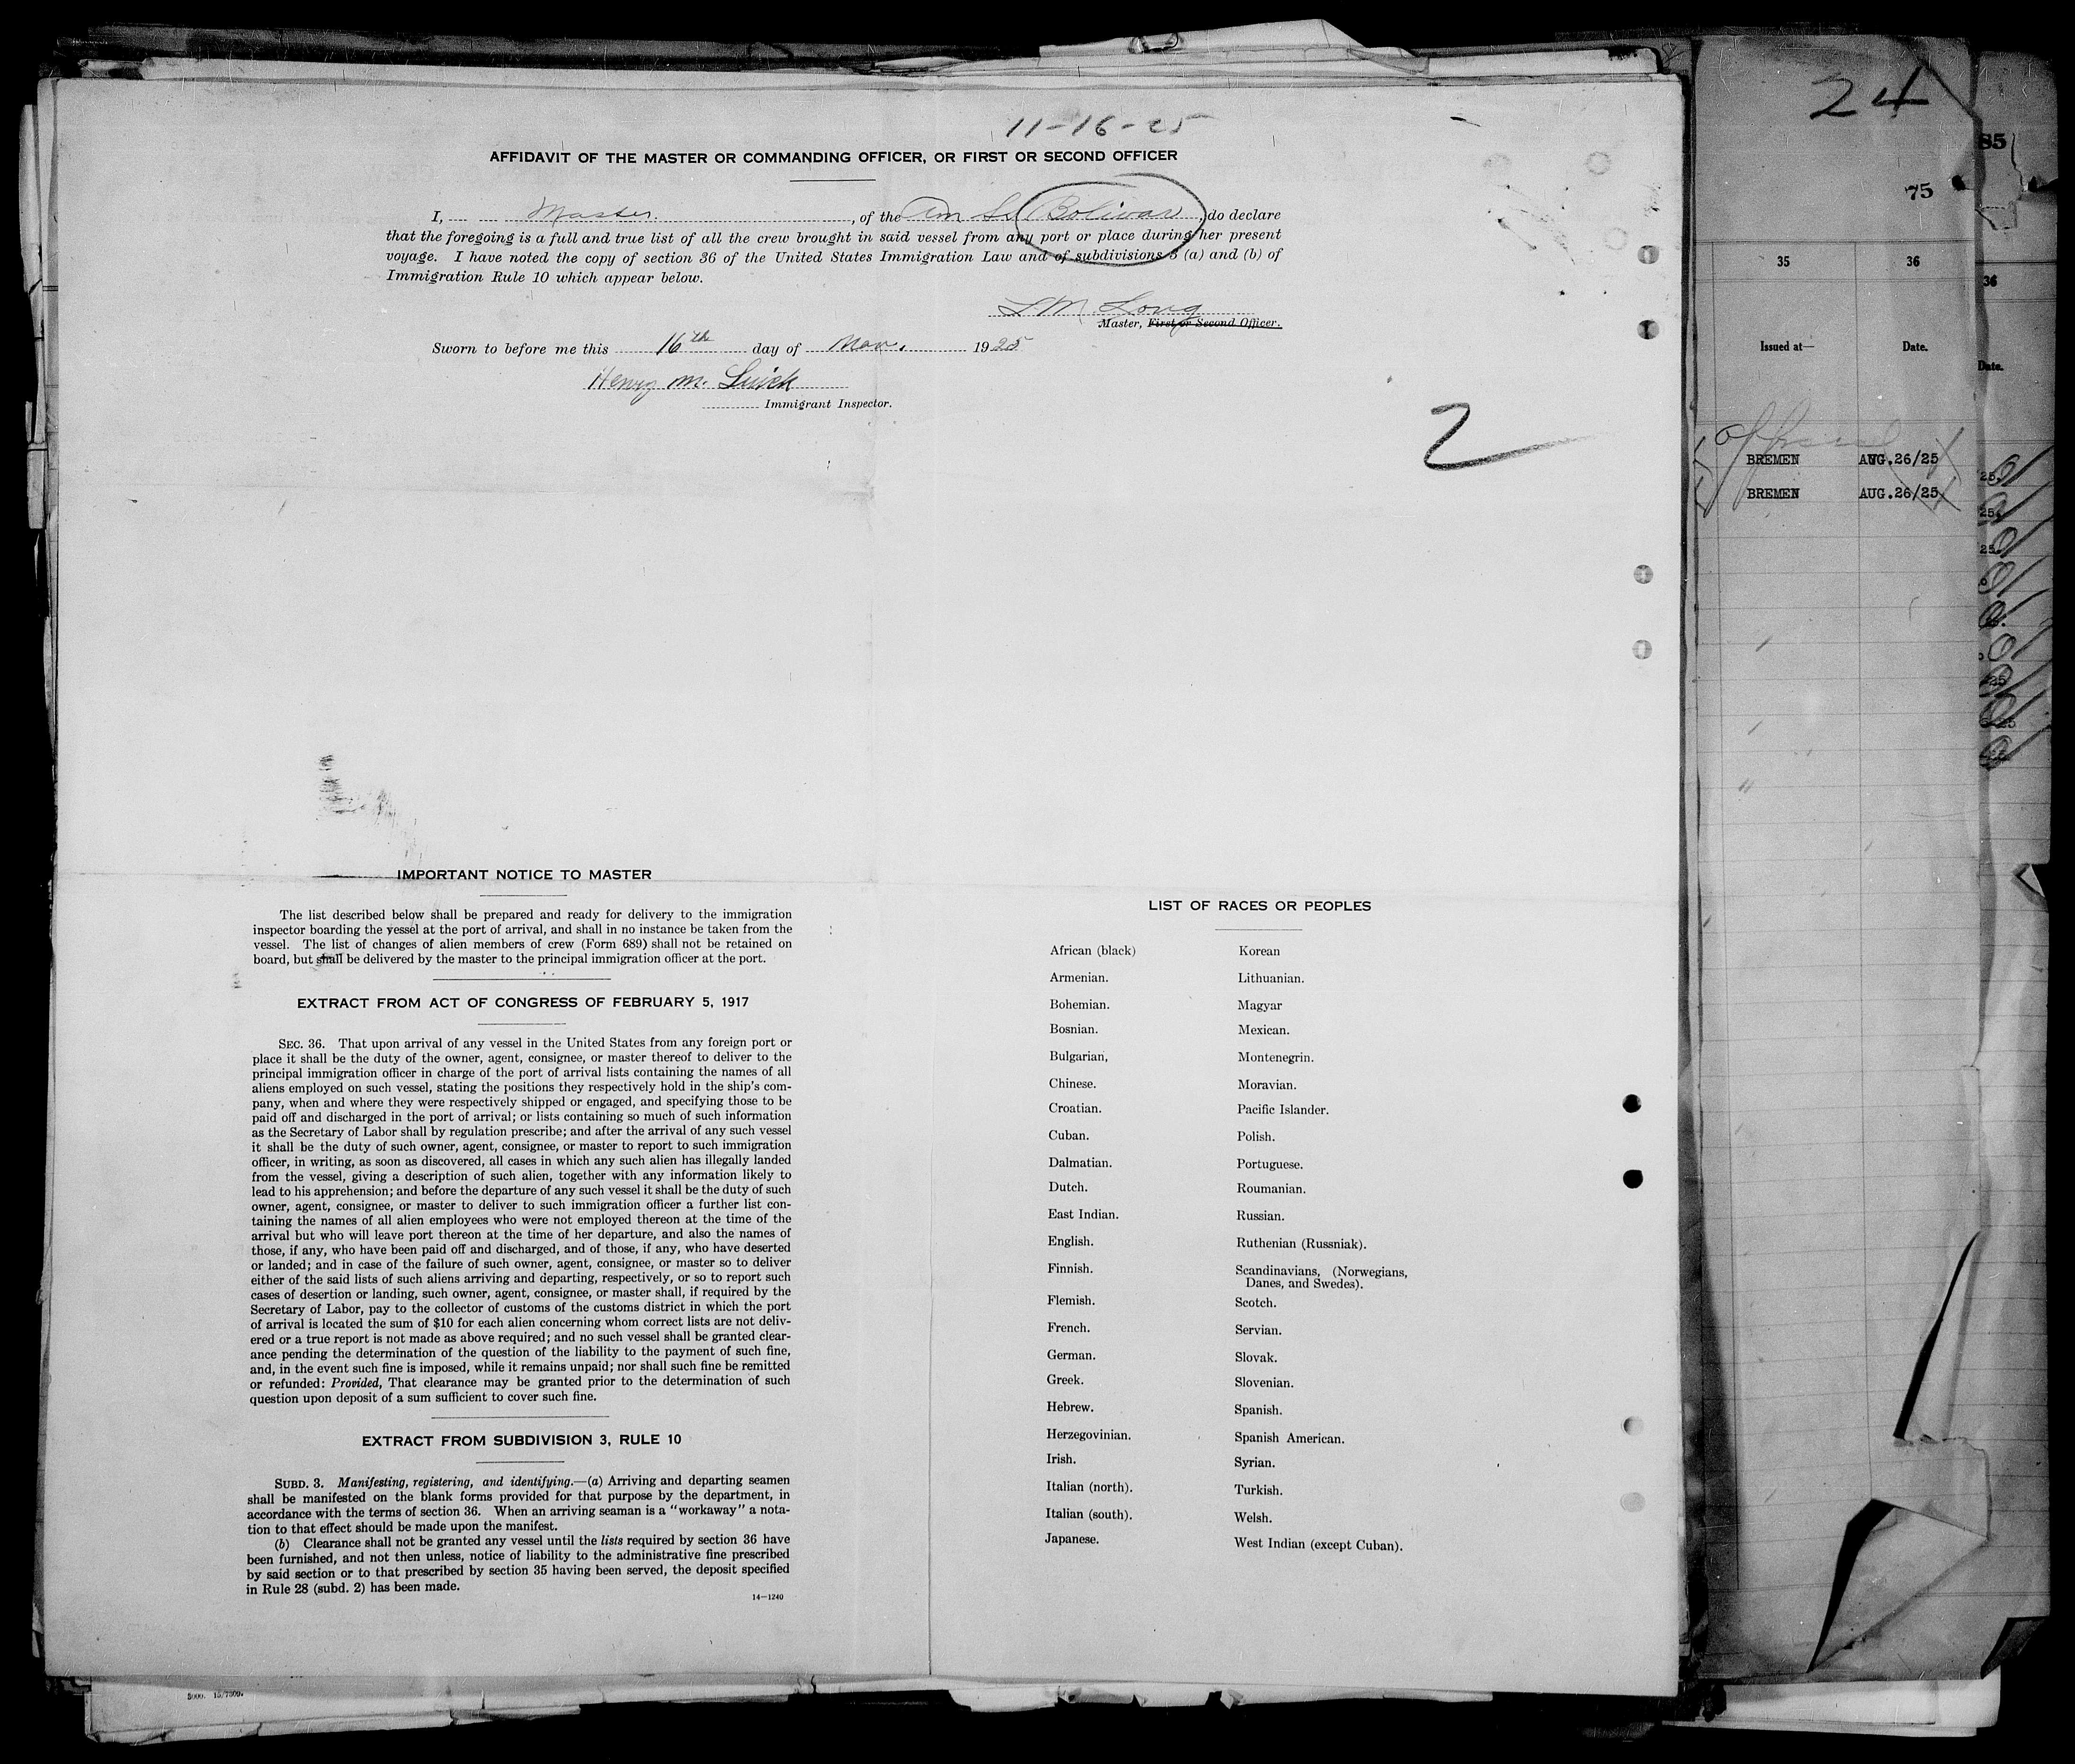 11-16-25
AFFIDAVIT OF THE MASTER OR COMMANDING OFFICER, OR FIRST OR SECOND OFFICER
I, Master, of the Am Bolivar, do declare
that the foregoing is a full and true list of all the crew brought in said vessel from any port or place during her present
voyage. I have noted the copy of section 36 of the United States Immigration Law and of subdivisions 3 (a) and (b) of
Immigration Rule 10 which appear below.
Long
Master, First or Second Officer.
Sworn to before me this 16th day of Nov. 1925
Henry M.
Immigrant Inspector.
2
IMPORTANT NOTICE TO MASTER
The list described below shall be prepared and ready for delivery to the immigration
inspector boarding the vessel at the port of arrival, and shall in no instance be taken from the
vessel. The list of changes of alien members of crew (Form 689) shall not be retained on
board, but shall be delivered by the master to the principal immigration officer at the port.
EXTRACT FROM ACT OF CONGRESS OF FEBRUARY 5, 1917
SEC. 36. That upon arrival of any vessel in the United States from any foreign port or
place it shall be the duty of the owner, agent, consignee, or master thereof to deliver to the
principal immigration officer in charge of the port of arrival lists containing the names of all
aliens employed on such vessel, stating the positions they respectively hold in the ship's com-
pany, when and where they were respectively shipped or engaged, and specifying those to be
paid off and discharged in the port of arrival; or lists containing so much of such information
as the Secretary of Labor shall by regulation prescribe; and after the arrival of any such vessel
it shall be the duty of such owner, agent, consignee, or master to report to such immigration
officer, in writing, as soon as discovered, all cases in which any such alien has illegally landed
from the vessel, giving a description of such alien, together with any information likely to
lead to his apprehension; and before the departure of any such vessel it shall be the duty of such
owner, agent, consignee, or master to deliver to such immigration officer a further list con-
taining the names of all alien employees who were not employed thereon at the time of the
arrival but who will leave port thereon at the time of her departure, and also the names of
those, if any, who have been paid off and discharged, and of those, if any, who have deserted
or landed; and in case of the failure of such owner, agent, consignee, or master so to deliver
either of the said lists of such aliens arriving and departing, respectively, or so to report such
cases of desertion or landing, such owner, agent, consignee, or master shall, if required by the
Secretary of Labor, pay to the collector of customs of the customs district in which the port
of arrival is located the sum of $10 for each alien concerning whom correct lists are not deliv-
ered or a true report is not made as above required; and no such vessel shall be granted clear-
ance pending the determination of the question of the liability to the payment of such fine,
and, in the event such fine is imposed, while it remains unpaid; nor shall such fine be remitted
or refunded: Provided, That clearance may be granted prior to the determination of such
question upon deposit of a sum sufficient to cover such fine.
EXTRACT FROM SUBDIVISION 3, RULE 10
SUBD. 3. Manifesting, registering, and identifying.—(a) Arriving and departing seamen
shall be manifested on the blank forms provided for that purpose by the department, in
accordance with the terms of section 36. When an arriving seaman is a "workaway" a nota-
tion to that effect should be made upon the manifest.
(b) Clearance shall not be granted any vessel until the lists required by section 36 have
been furnished, and not then unless, notice of liability to the administrative fine prescribed
by said section or to that prescribed by section 35 having been served, the deposit specified
in Rule 28 (subd. 2) has been made.
14—1240
LIST OF RACES OR PEOPLES
African (black) Korean
Armenian. Lithuanian.
Bohemian. Magyar
Bosnian. Mexican.
Bulgarian, Montenegrin.
Chinese. Moravian.
Croatian. Pacific Islander.
Cuban. Polish.
Dalmatian. Portuguese.
Dutch. Roumanian.
East Indian. Russian.
English. Ruthenian (Russniak).
Finnish. Scandinavians, (Norwegians,
Danes, and Swedes).
Flemish. Scotch.
French. Servian.
German. Slovak.
Greek. Slovenian.
Hebrew. Spanish.
Herzegovinian. Spanish American.
Irish. Syrian.
Italian (north). Turkish.
Italian (south). Welsh.
Japanese. West Indian (except Cuban).
24
75
35 36
Issued at— Date.
BREMEN AUG.26/25
BREMEN AUG.26/25
85
36
Date.